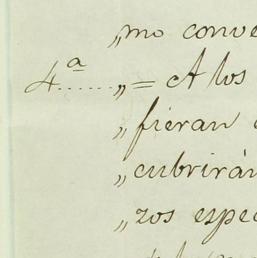 „mo conve
4ª......„= A los
„fieran
„cubrirán
„zos espec